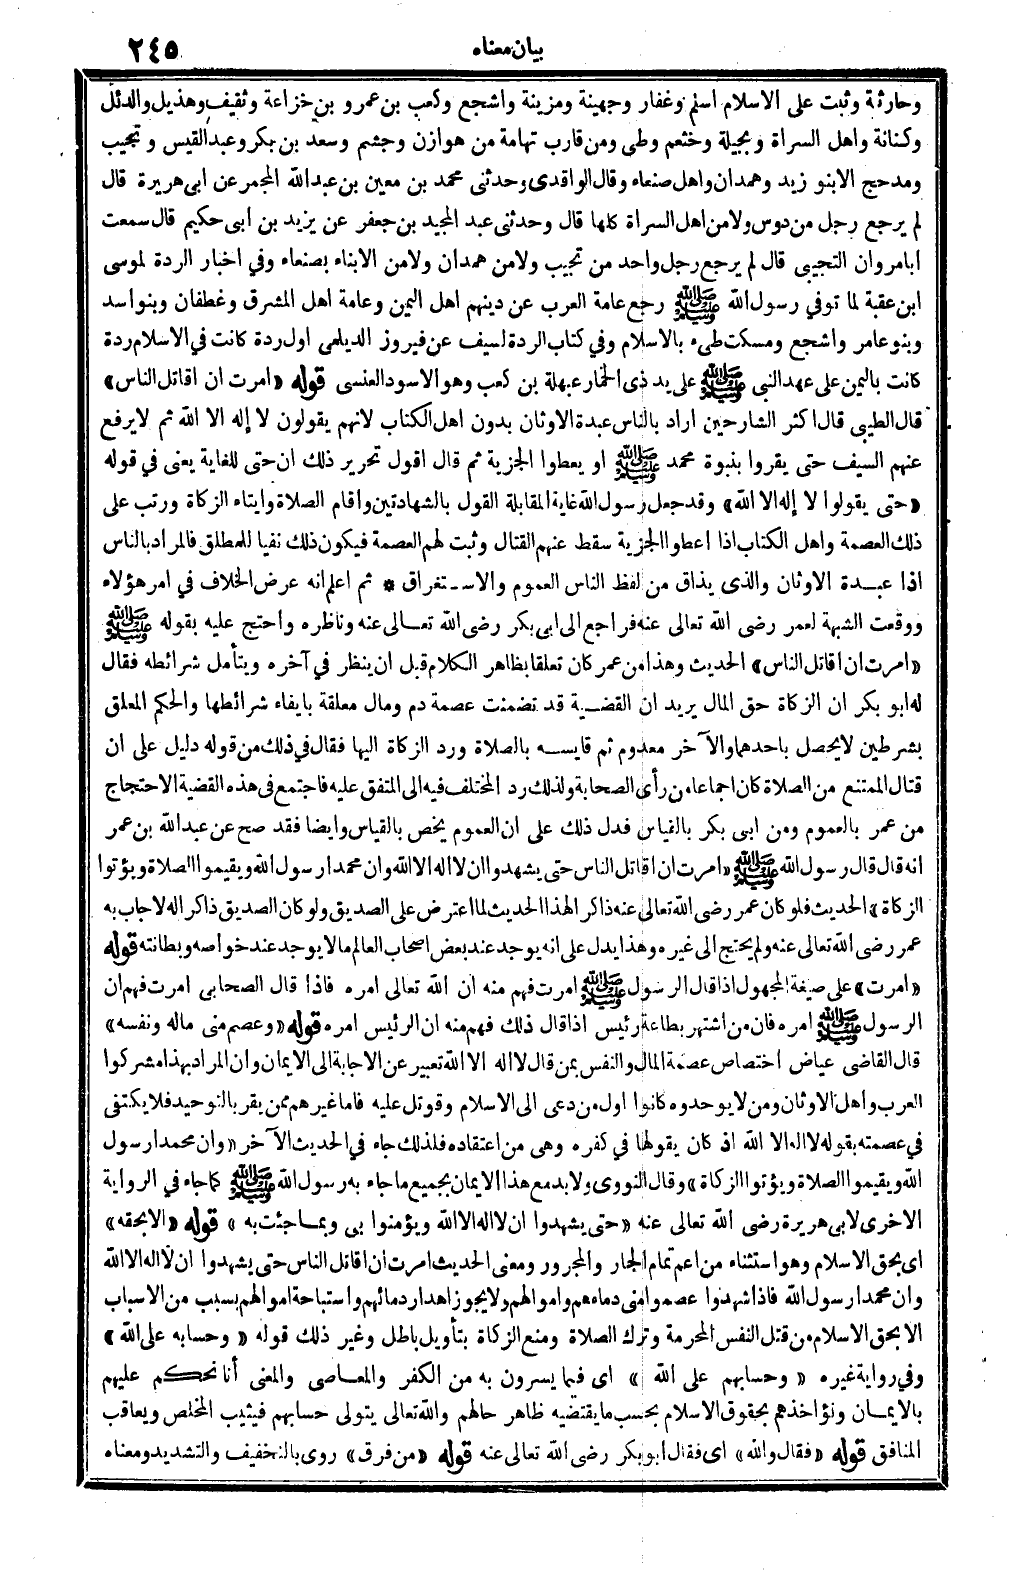 بيان معناه
٢٤٥
وحارثة وثبت على الاسلام اسلم وغفار وجهينة ومزينة واشجع وكعب بن عمرو بن خزاعة وثقيف وهذيل والدئل
وكنانة واهل السراة وبجيلة وخثعم وطى ومن قارب تهامة من هوازن وجشم وسعد بن بكر وعبد القيس وتجيب
ومدحج الابنو زيد وهمدان واهل صنعاء وقال الواقدى وحدثنى محمد بن معين بن عبدالله المجمر عن ابى هريرة قال
لم يرجع رجل من دوس ولا من اهل السراة كلها قال وحدثنى عبد المجيد بن جعفر عن يزيد بن ابى حكيم قال سمعت
ابا مروان التجيبى قال لم يرجع رجل واحد من تجيب ولا من همدان ولا من الابناء بصنعاء وفي اخبار الردة لموسى
ابن عقبة لما توفي رسول الله ﷺ رجع عامة العرب عن دينهم اهل اليمن وعامة اهل المشرق وغطفان وبنو اسد
وبنو عامر واشجع ومسكت طىء بالاسلام وفي كتاب الردة لسيف عن فيروز الديلمى اول ردة كانت في الاسلام ردة
كانت باليمن على عهد النبى ﷺ على يد ذى الخمار عبهلة بن كعب وهو الاسود العنسى قوله «امرت ان اقاتل الناس»
قال الطيبى قال اكثر الشارحين اراد بالناس عبدة الاوثان بدون اهل الكتاب لانهم يقولون لا إله الا الله ثم لا يرفع
عنهم السيف حتى يقروا بنبوة محمد ﷺ او يعطوا الجزية ثم قال اقول تحرير ذلك ان حتى للغاية يعنى في قوله
«حتى يقولوا لا إله الا الله» وقد جعل رسول الله غاية المقابلة القول بالشهادتين واقام الصلاة وايتاء الزكاة ورتب على
ذلك العصمة واهل الكتاب اذا اعطوا الجزية سقط عنهم القتال وثبت لهم العصمة فيكون ذلك نفيا للمطلق فالمراد بالناس
اذا عبدة الاوثان والذى يذاق من لفظ الناس العموم والاستغراق * ثم اعلم انه عرض الخلاف في امر هؤلاء
ووقعت الشبهة لعمر رضى الله تعالى عنه فراجع الى ابى بكر رضى الله تعالى عنه وناظره واحتج عليه بقوله ﷺ
«امرت ان اقاتل الناس» الحديث وهذا من عمر كان تعلقا بظاهر الكلام قبل ان ينظر في آخره ويتأمل شرائطه فقال
له ابو بكر ان الزكاة حق المال يريد ان القضية قد تضمنت عصمة دم ومال معلقة بايفاء شرائطها والحكم المعلق
بشرطين لا يحصل باحدهما والآخر معدوم ثم قايسه بالصلاة ورد الزكاة اليها فقال في ذلك من قوله دليل على ان
قتال الممتنع من الصلاة كان اجماعا من رأى الصحابة ولذلك رد المختلف فيه الى المتفق عليه فاجتمع في هذه القضية الاحتجاج
من عمر بالعموم ومن ابى بكر بالقياس فدل ذلك على ان العموم يخص بالقياس وايضا فقد صح عن عبدالله بن عمر
انه قال قال رسول الله ﷺ «امرت ان اقاتل الناس حتى يشهدوا ان لا اله الا الله وان محمدا رسول الله ويقيموا الصلاة ويؤتوا
الزكاة» الحديث فلو كان عمر رضى الله تعالى عنه ذاكرا لهذا الحديث لما اعترض على الصديق ولو كان الصديق ذاكرا له لاجاب به
عمر رضى الله تعالى عنه ولم يحتج الى غيره وهذا يدل على انه يوجد عند بعض اصحاب العالم ما لا يوجد عند خواصه وبطانته قوله
«امرت» على صيغة المجهول اذا قال الرسول ﷺ امرت فهم منه ان الله تعالى امره فاذا قال الصحابى امرت فهم ان
الرسول ﷺ امره فان من اشتهر بطاعة رئيس اذا قال ذلك فهم منه ان الرئيس امره قوله «وعصم منى ماله ونفسه»
قال القاضى عياض اختصاص عصمة المال والنفس بمن قال لا اله الا الله تعبير عن الاجابة الى الايمان وان المراد بهذا مشركوا
العرب واهل الاوثان ومن لا يوحد وه كانوا اول من دعى الى الاسلام وقوتل عليه فاما غيرهم ممن يقر بالتوحيد فلا يكتفى
في عصمته بقوله لا اله الا الله اذ كان يقولها في كفره وهى من اعتقاده فلذلك جاء في الحديث الآخر «وان محمدا رسول
الله ويقيموا الصلاة ويؤتوا الزكاة» وقال النووى ولا بد مع هذا الايمان بجميع ما جاء به رسول الله ﷺ كما جاء في الرواية
الاخرى لابى هريرة رضى الله تعالى عنه «حتى يشهدوا ان لا اله الا الله ويؤمنوا بى وبما جئت به» قوله «الا بحقه»
اى بحق الاسلام وهو استثناء من اعم تمام الجار والمجرور ومعنى الحديث امرت ان اقاتل الناس حتى يشهدوا ان لا اله الا الله
وان محمدا رسول الله فاذا شهدوا عصموا منى دماءهم واموالهم ولا يجوز اهدار دمائهم واستباحة اموالهم بسبب من الاسباب
الا بحق الاسلام من قتل النفس المحرمة وترك الصلاة ومنع الزكاة بتأويل باطل وغير ذلك قوله «وحسابه على الله»
وفي رواية غيره «وحسابهم على الله» اى فيما يسرون به من الكفر والمعاصى والمعنى أنا نحكم عليهم
بالايمان ونؤاخذهم بحقوق الاسلام بحسب ما يقتضيه ظاهر حالهم والله تعالى يتولى حسابهم فيثيب المخلص ويعاقب
المنافق قوله «فقال والله» اى فقال ابو بكر رضى الله تعالى عنه قوله «من فرق» روى بالتخفيف والتشديد ومعناه